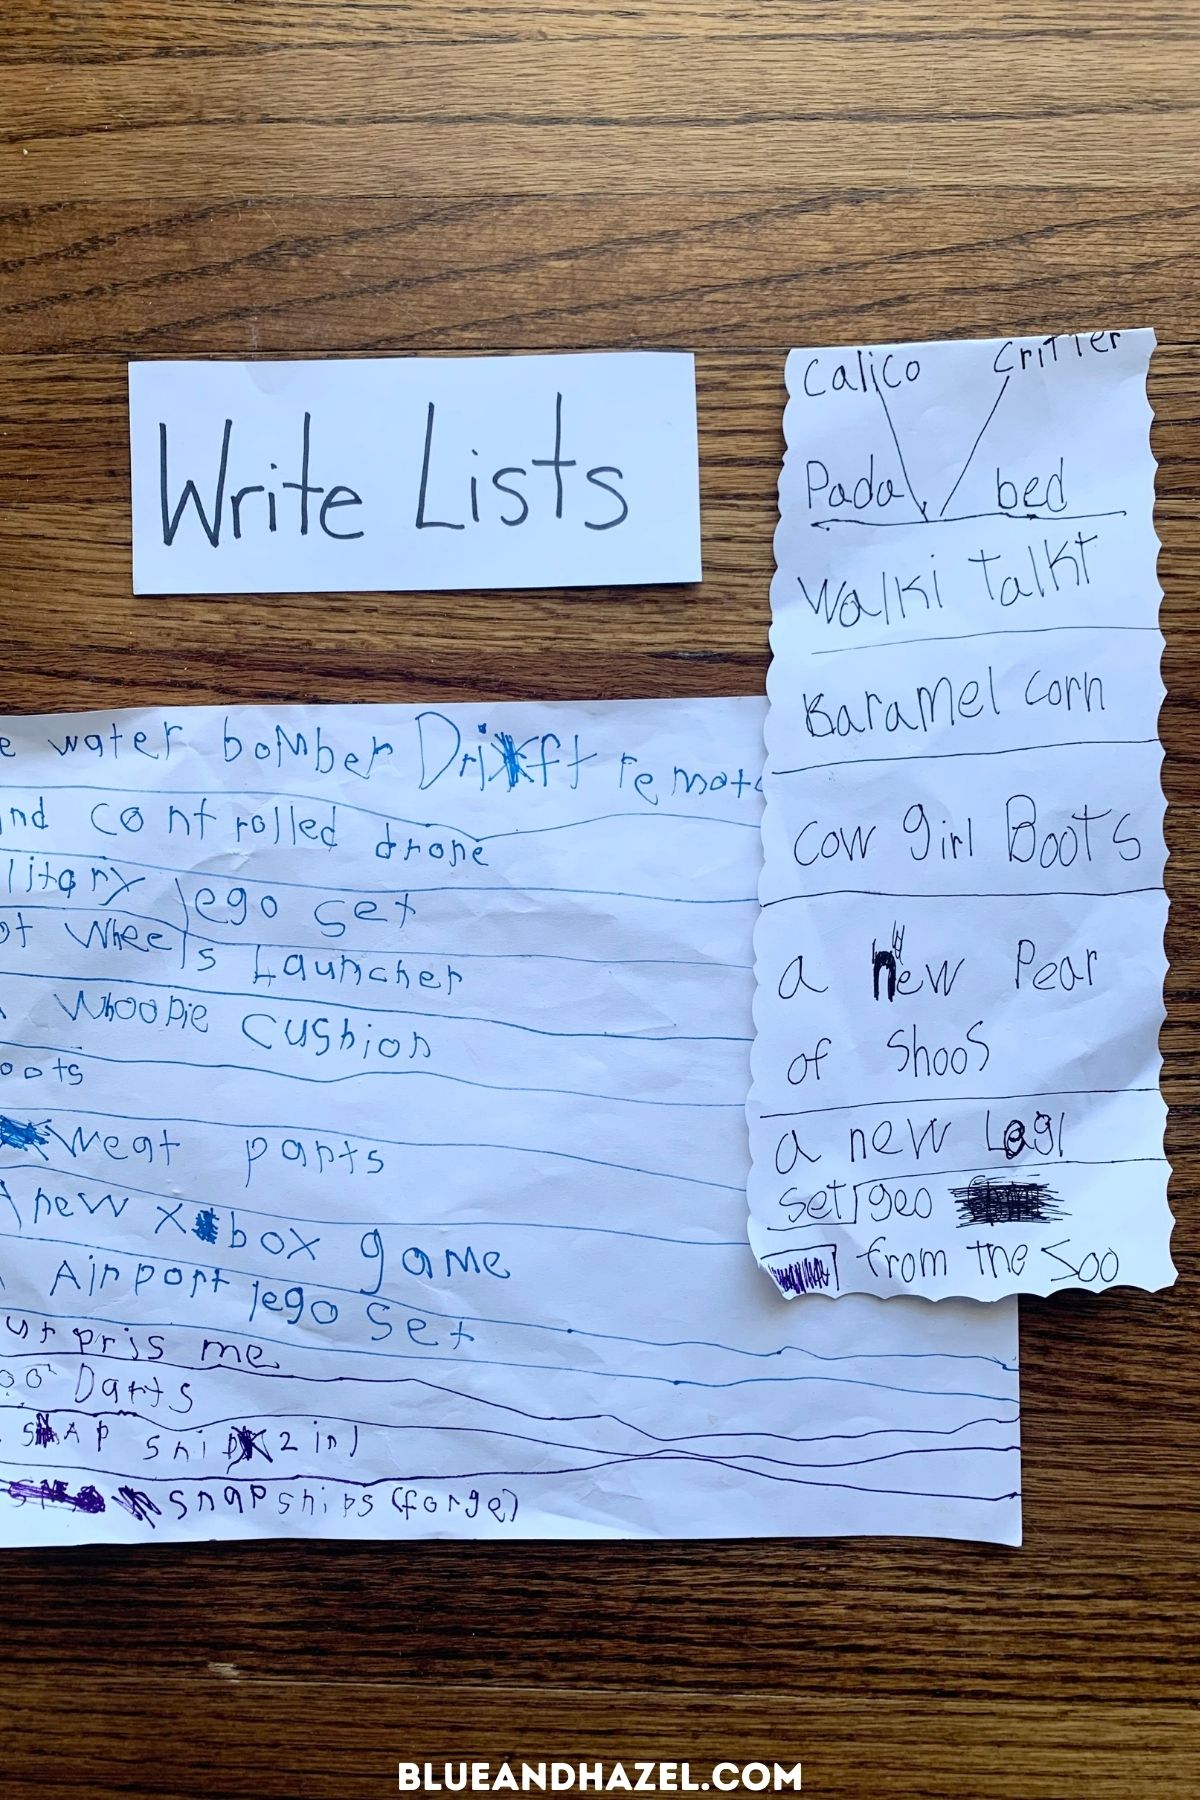 Write Lists
Calico Critter
Pada bed
Walki talkt
Karamel corn
cow girl Boots
a new Pear
of shoos
a new Legl
set geo
from the Soo
e water bomber Drift remot
nd controlled drone
litary lego set
ot Wheels Launcher
Whoopie Cushion
oots
Weat pants
A new x box game
Airport lego set
urpris me
00 Darts
snap ship 2 in 1
snap ships (forge)
BLUEANDHAZEL.COM